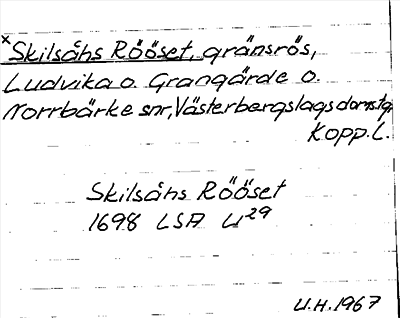 x Skilsåhs Rööset, gränsrös,
Ludvika o. Grangärde o.
Norrbärke snr, Västerbergslags domstg,
Kopp. L.
Skilsåhs Rööset
1698 LSA U29
U.H. 1967